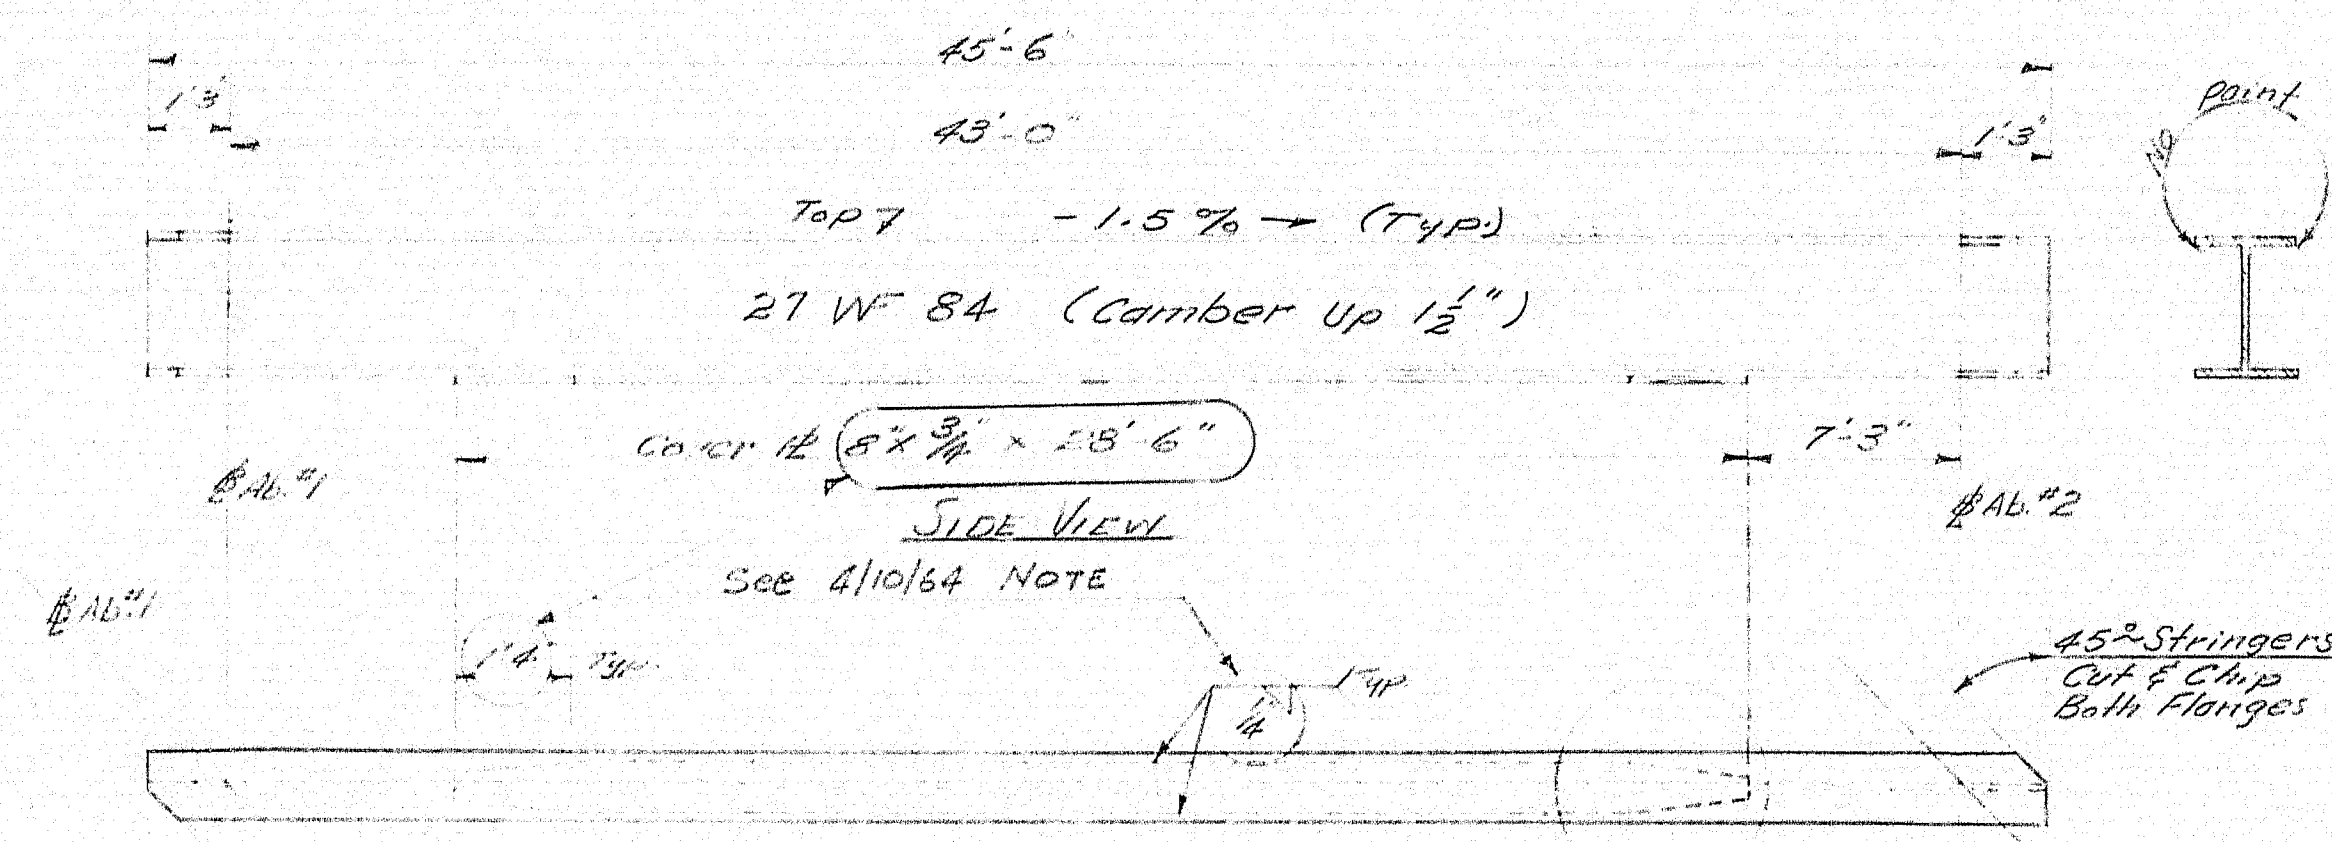 45'-6"
1'3"
43'-0"
1'3"
No paint
Top 7 -1.5 % → (Typ.)
27 WF 84 (Camber Up 1 1/2")
Cover ℄ 8" x 3/4" x 28'-6"
7'-3"
℄ Ab. #1
℄ Ab. #2
SIDE VIEW
See 4/10/64 NOTE
℄ Ab. #1
1'4" Typ.
Typ.
1/4
45° Stringers
Cut & Chip
Both Flanges